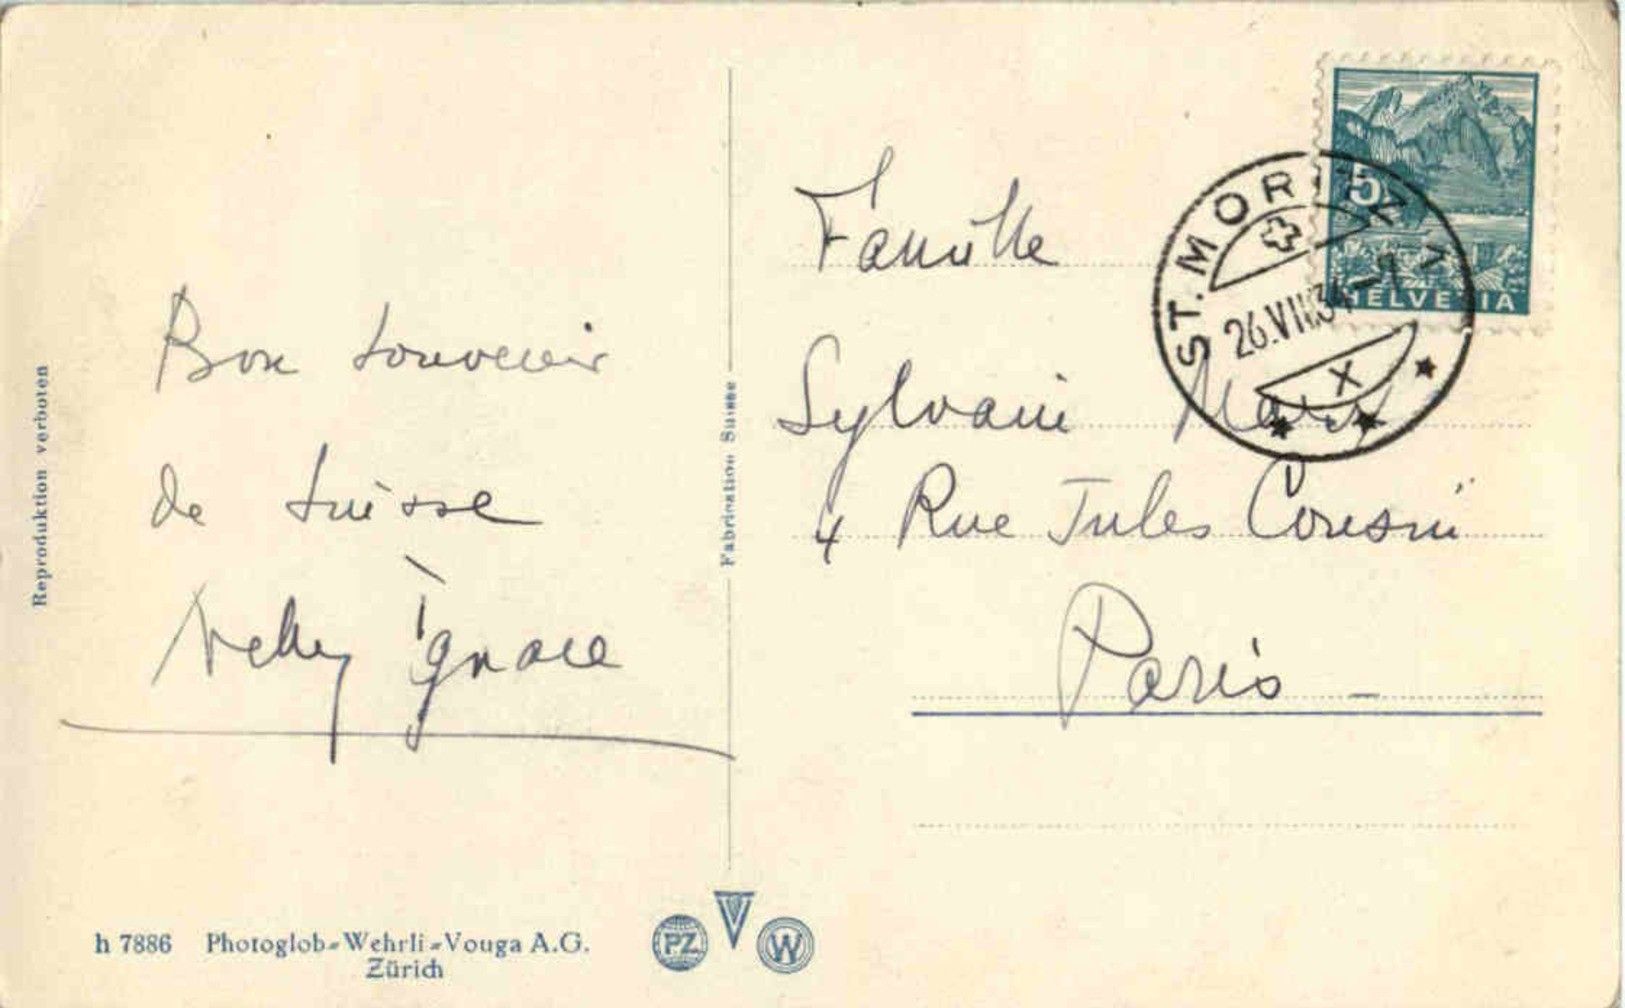 Reproduktion verboten
Bon souvenir
de Suisse
Ignace
h 7886 Photoglob-Wehrli-Vouga A.G.
Zürich
Fabrication Suisse
PZ V W
5
HELVETIA
ST. MORITZ 1
26.VIII.34-7
X
Famille
Sylvain
4 Rue Jules Cousin
Paris -